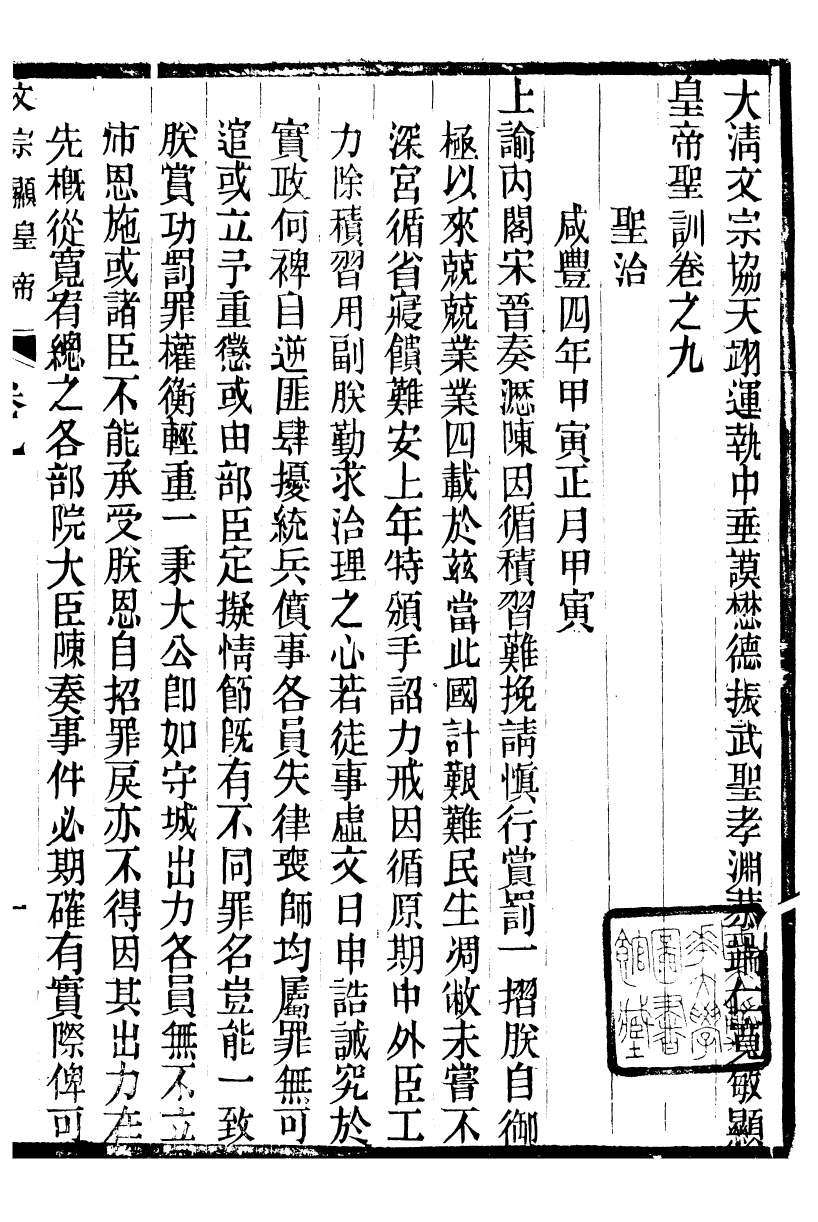 大清文宗協天翊運執中垂謨懋德振武聖孝淵恭端仁寬敏顯
皇帝聖訓卷之九
聖治
咸豐四年甲寅正月甲寅
上諭內閣宋晉奏瀝陳因循積習難挽請慎行賞罰一摺朕自御
極以來兢兢業業四載於茲當此國計艱難民生凋敝未嘗不
深宮循省寢饋難安上年特頒手詔力戒因循原期中外臣工
力除積習用副朕勤求治理之心若徒事虛文日申誥誡究於
實政何裨自逆匪肆擾統兵僨事各員失律喪師均屬罪無可
逭或立予重懲或由部臣定擬情節既有不同罪名豈能一致
朕賞功罰罪權衡輕重一秉大公即如守城出力各員無不立
沛恩施或諸臣不能承受朕恩自招罪戾亦不得因其出力在
先概從寬宥總之各部院大臣陳奏事件必期確有實際俾可
文宗顯皇帝 一